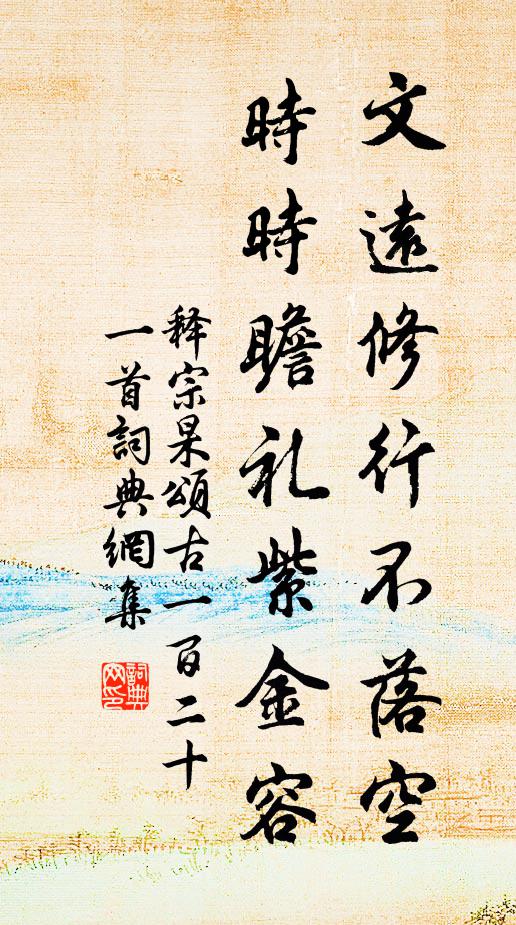 文遠修行不落空
時時瞻礼紫金容
释宗杲頌古一百二十
一首詞典網集
詞典網印